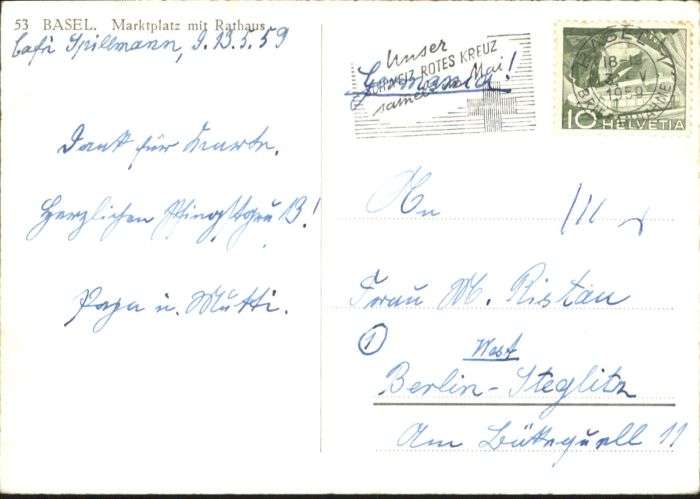 53 BASEL. Marktplatz mit Rathaus
Café Spillmann, 13.5.59
Dank für Karte.
Herzlichen Pfingstgruß!
Papa u. Mutti.
Unser
SCHWEIZ. ROTES KREUZ
sammelt im Mai
Germania!
BASEL
18-
1959
BRIEFANNAHME
10 HELVETIA
An
Frau M. Ristau
1
West
Berlin-Steglitz
Am Bäkequell 11